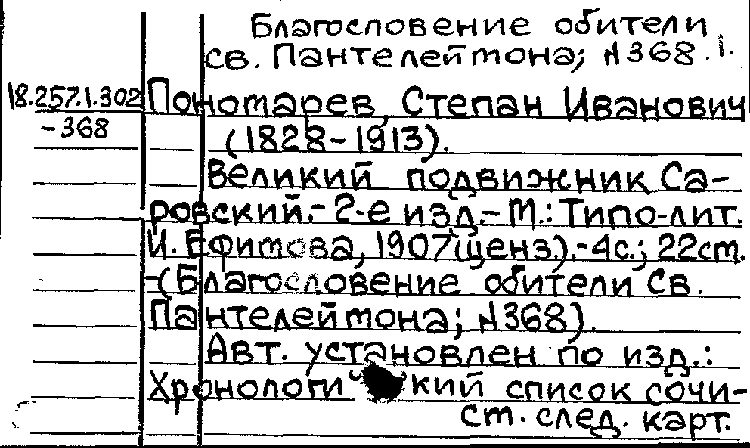 Благословение обители
св. Пантелеймона; №368.1.
18.257.1.302
-368
Пономарев, Степан Иванович
(1828-1913).
Великий подвижник Са-
ровский.- 2-е изд.- М.: Типо-лит.
И. Ефимова, 1907 (ценз.).- 4с.; 22см.
-(Благословение обители Св.
Пантелеймона; №368).
Авт. установлен по изд.:
Хронологи кий список сочи-
см. след. карт.